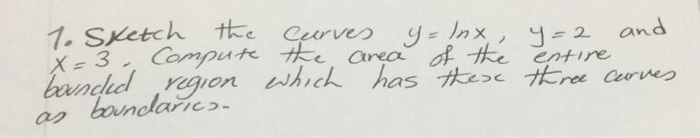 1. Sketch the curves y = ln x, y = 2 and
x = 3. Compute the area of the entire
bounded region which has these three curves
as boundaries.